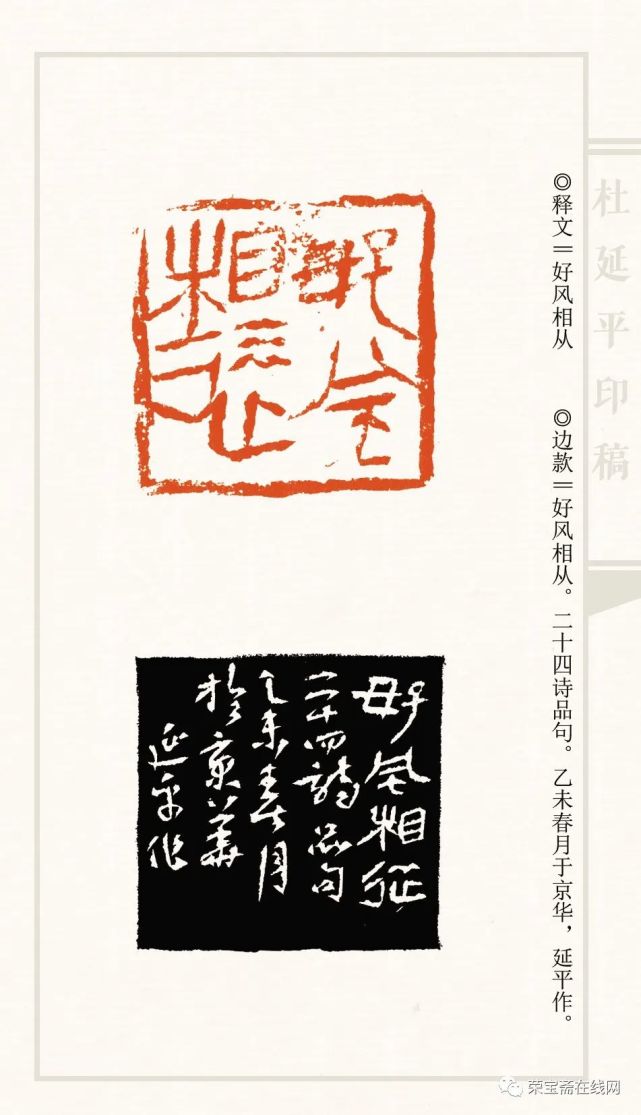 杜延平印稿
◎释文=好风相从
◎边款=好风相从。二十四诗品句。乙未春月于京华，延平作。
好风相从
好風相從
二十四詩品句
乙未春月
於京華
延平作
荣宝斋在线网